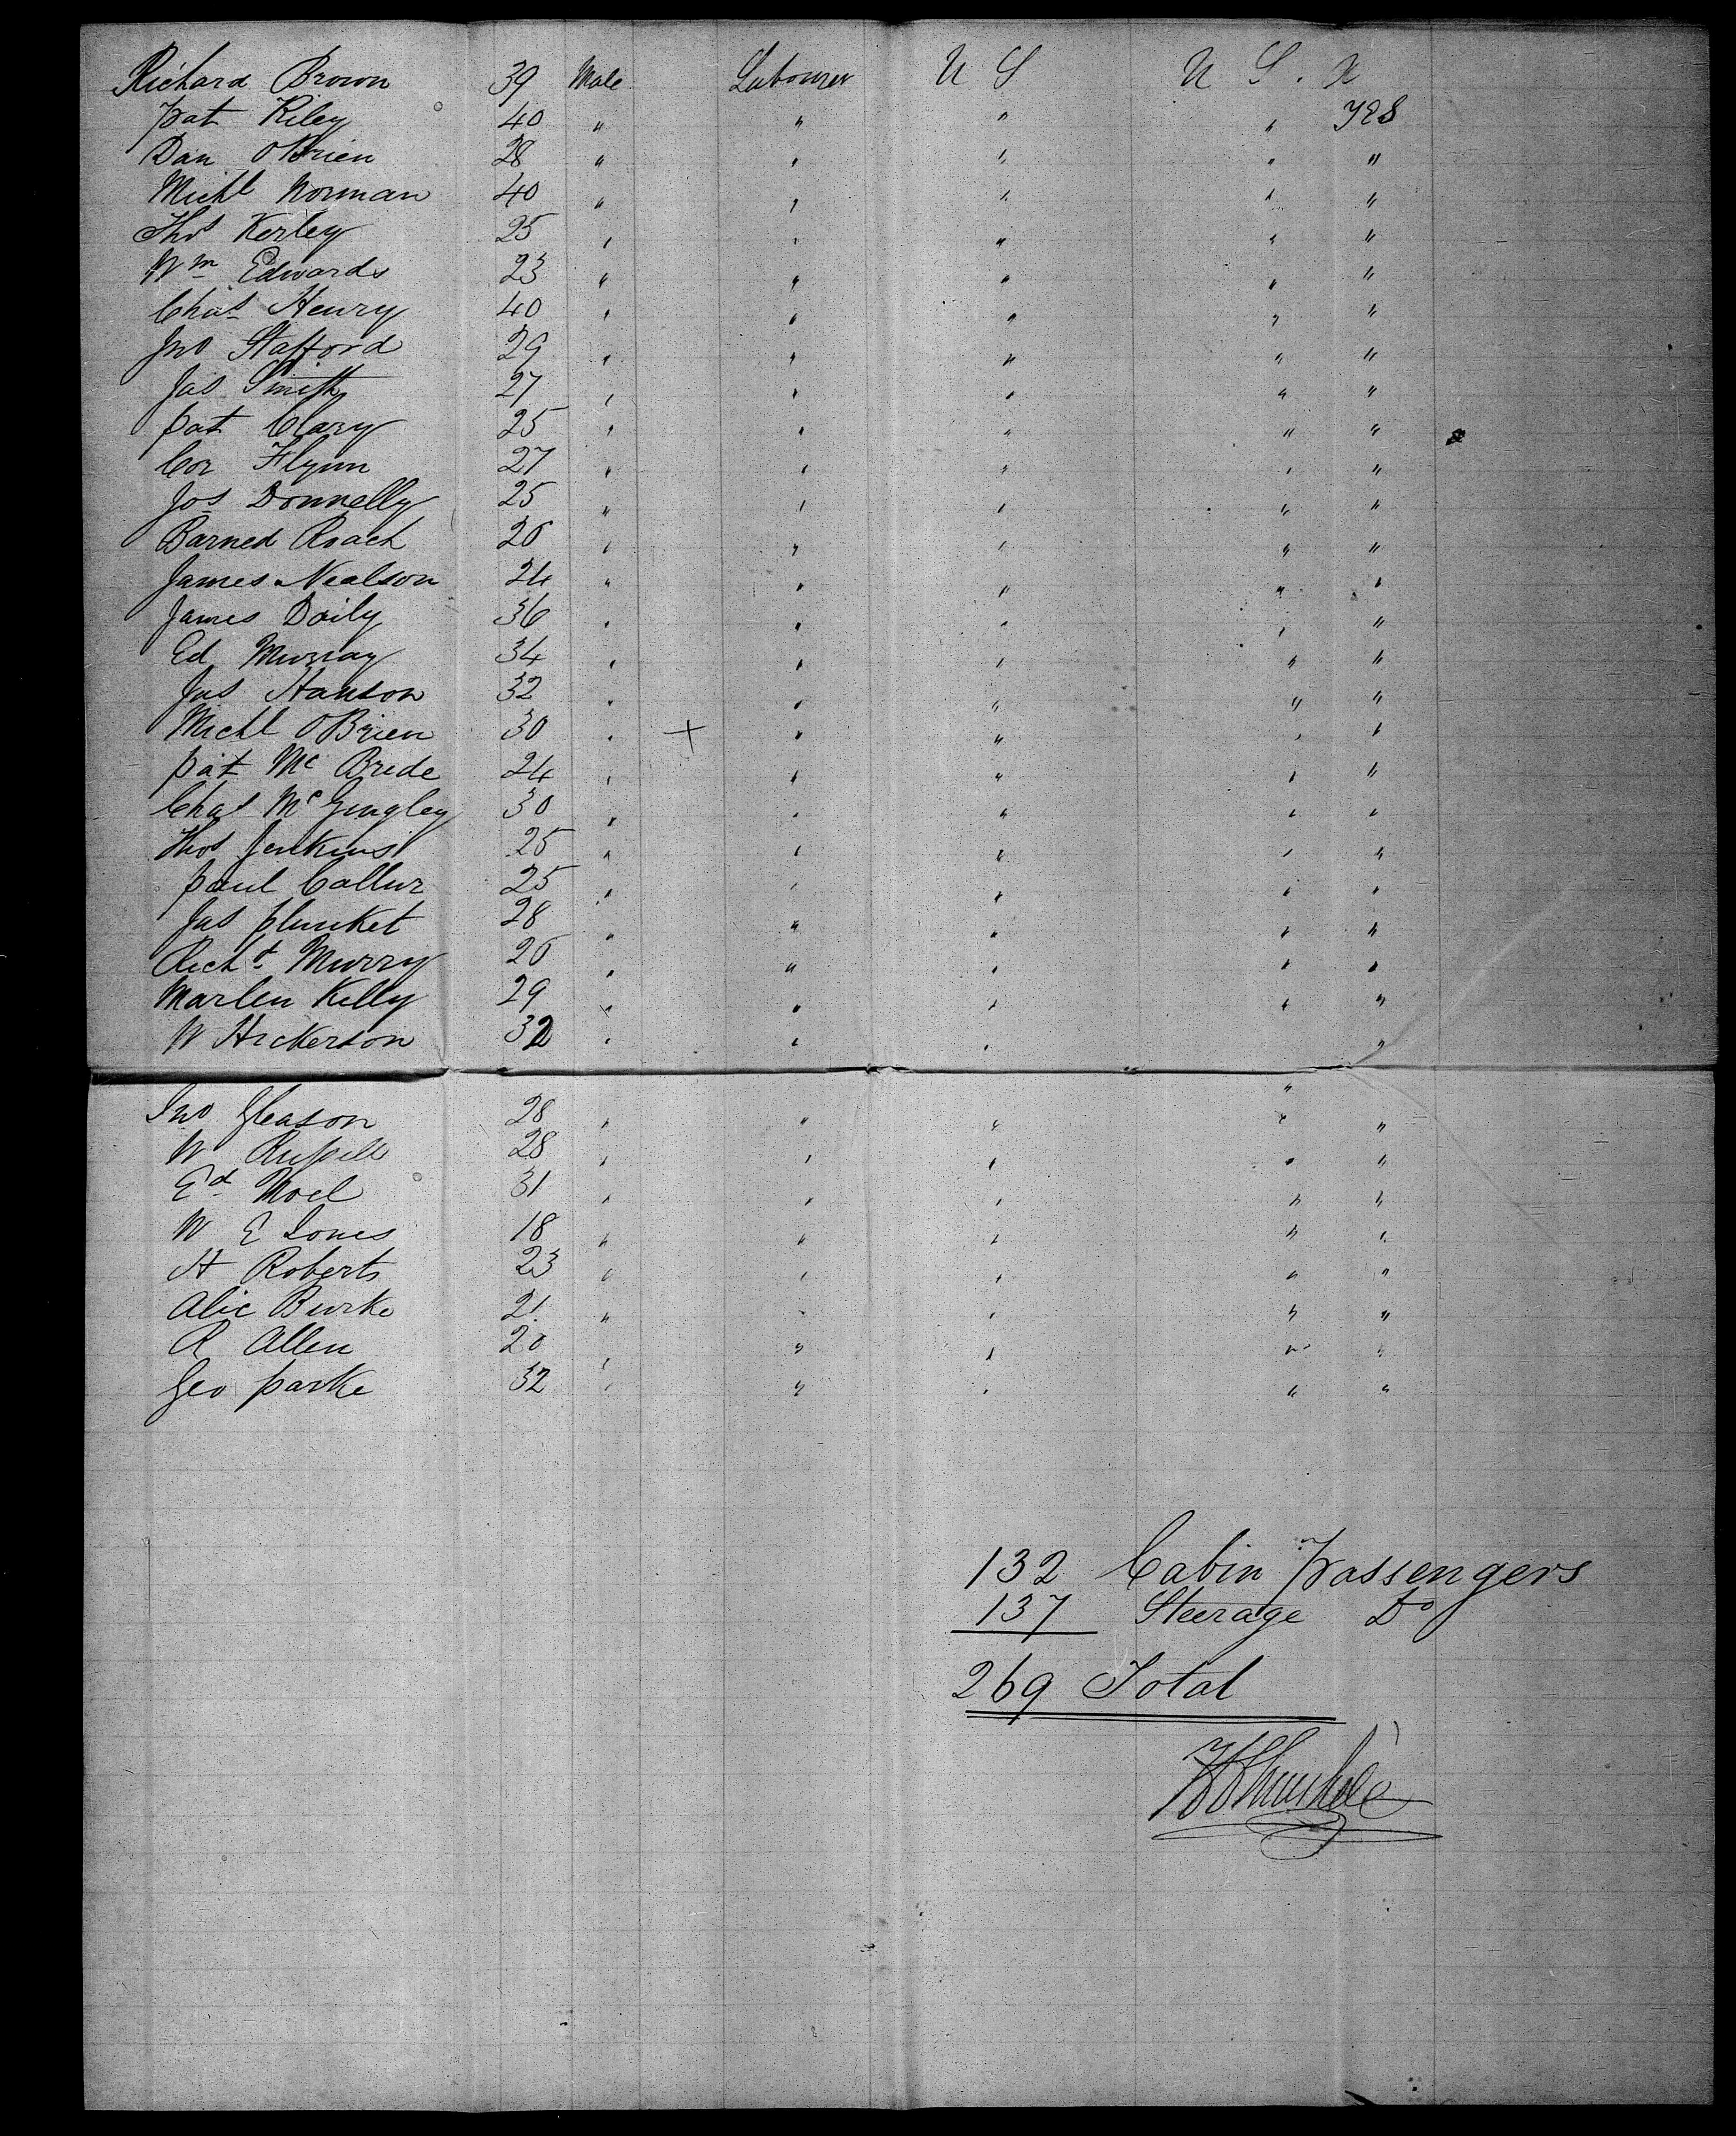 Richard Brown 39 Male Labourer U S U S. X
Pat Riley 40 " " " " YES
Dan OBrien 28 " " " " "
Michl Norman 40 " " " " "
Thos Kerley 25 " " " " "
Wm Edwards 23 " " " " "
Chas Henry 40 " " " " "
Jno Stafford 29 " " " " "
Jas Smith 27 " " " " "
Pat Clary 25 " " " " "
Cor Flynn 27 " " " " "
Jos Donnelly 25 " " " " "
Barned Roach 26 " " " " "
James Nealson 24 " " " " "
James Daily 36 " " " " "
Ed Murray 34 " " " " "
Jas Hanson 32 " " " " "
Michl OBrien 30 " + " " " "
Pat Mc Bride 24 " " " " "
Chas Mc Gingley 30 " " " " "
Thos Jenkins 25 " " " " "
Paul 25 " " " " "
Jas Plunket 28 " " " " "
Richd Murry 26 " " " " "
Marlen Kelly 29 " " " " "
W Hickerson 32 " " " " "
Jno Gleason 28 " " " " "
W Russell 28 " " " " "
Ed Noel 31 " " " " "
W E Jones 18 " " " " "
H Roberts 23 " " " " "
Alic Burke 21 " " " " "
R Allen 20 " " " " "
Geo Parke 32 " " " " "
132 Cabin Passengers
137 Steerage Do
269 Total